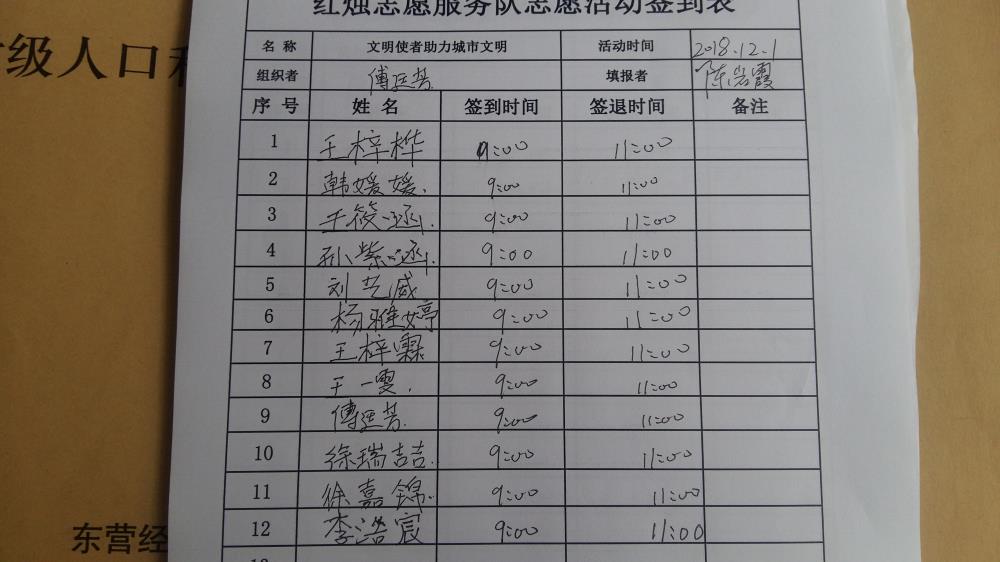 红烛志愿服务队志愿活动签到表
级人口
名 称 文明使者助力城市文明 活动时间 2018.12.1
组织者 傅廷芳 填报者 陈岩霞
序 号 姓 名 签到时间 签退时间 备注
1 王梓桦 9:00 11:00
2 韩媛媛. 9:00 11:00
3 王筱涵. 9:00 11:00
4 孙紫涵. 9:00 11:00
5 刘艺威 9:00 11:00
6 杨雅婷 9:00 11:00
7 王梓霖 9:00 11:00
8 王一雯. 9:00 11:00
9 傅廷芳. 9:00 11:00
10 徐瑞吉. 9:00 11:00
11 徐嘉锦. 9:00 11:00
12 李浩宸 9:00 11:00
东营经